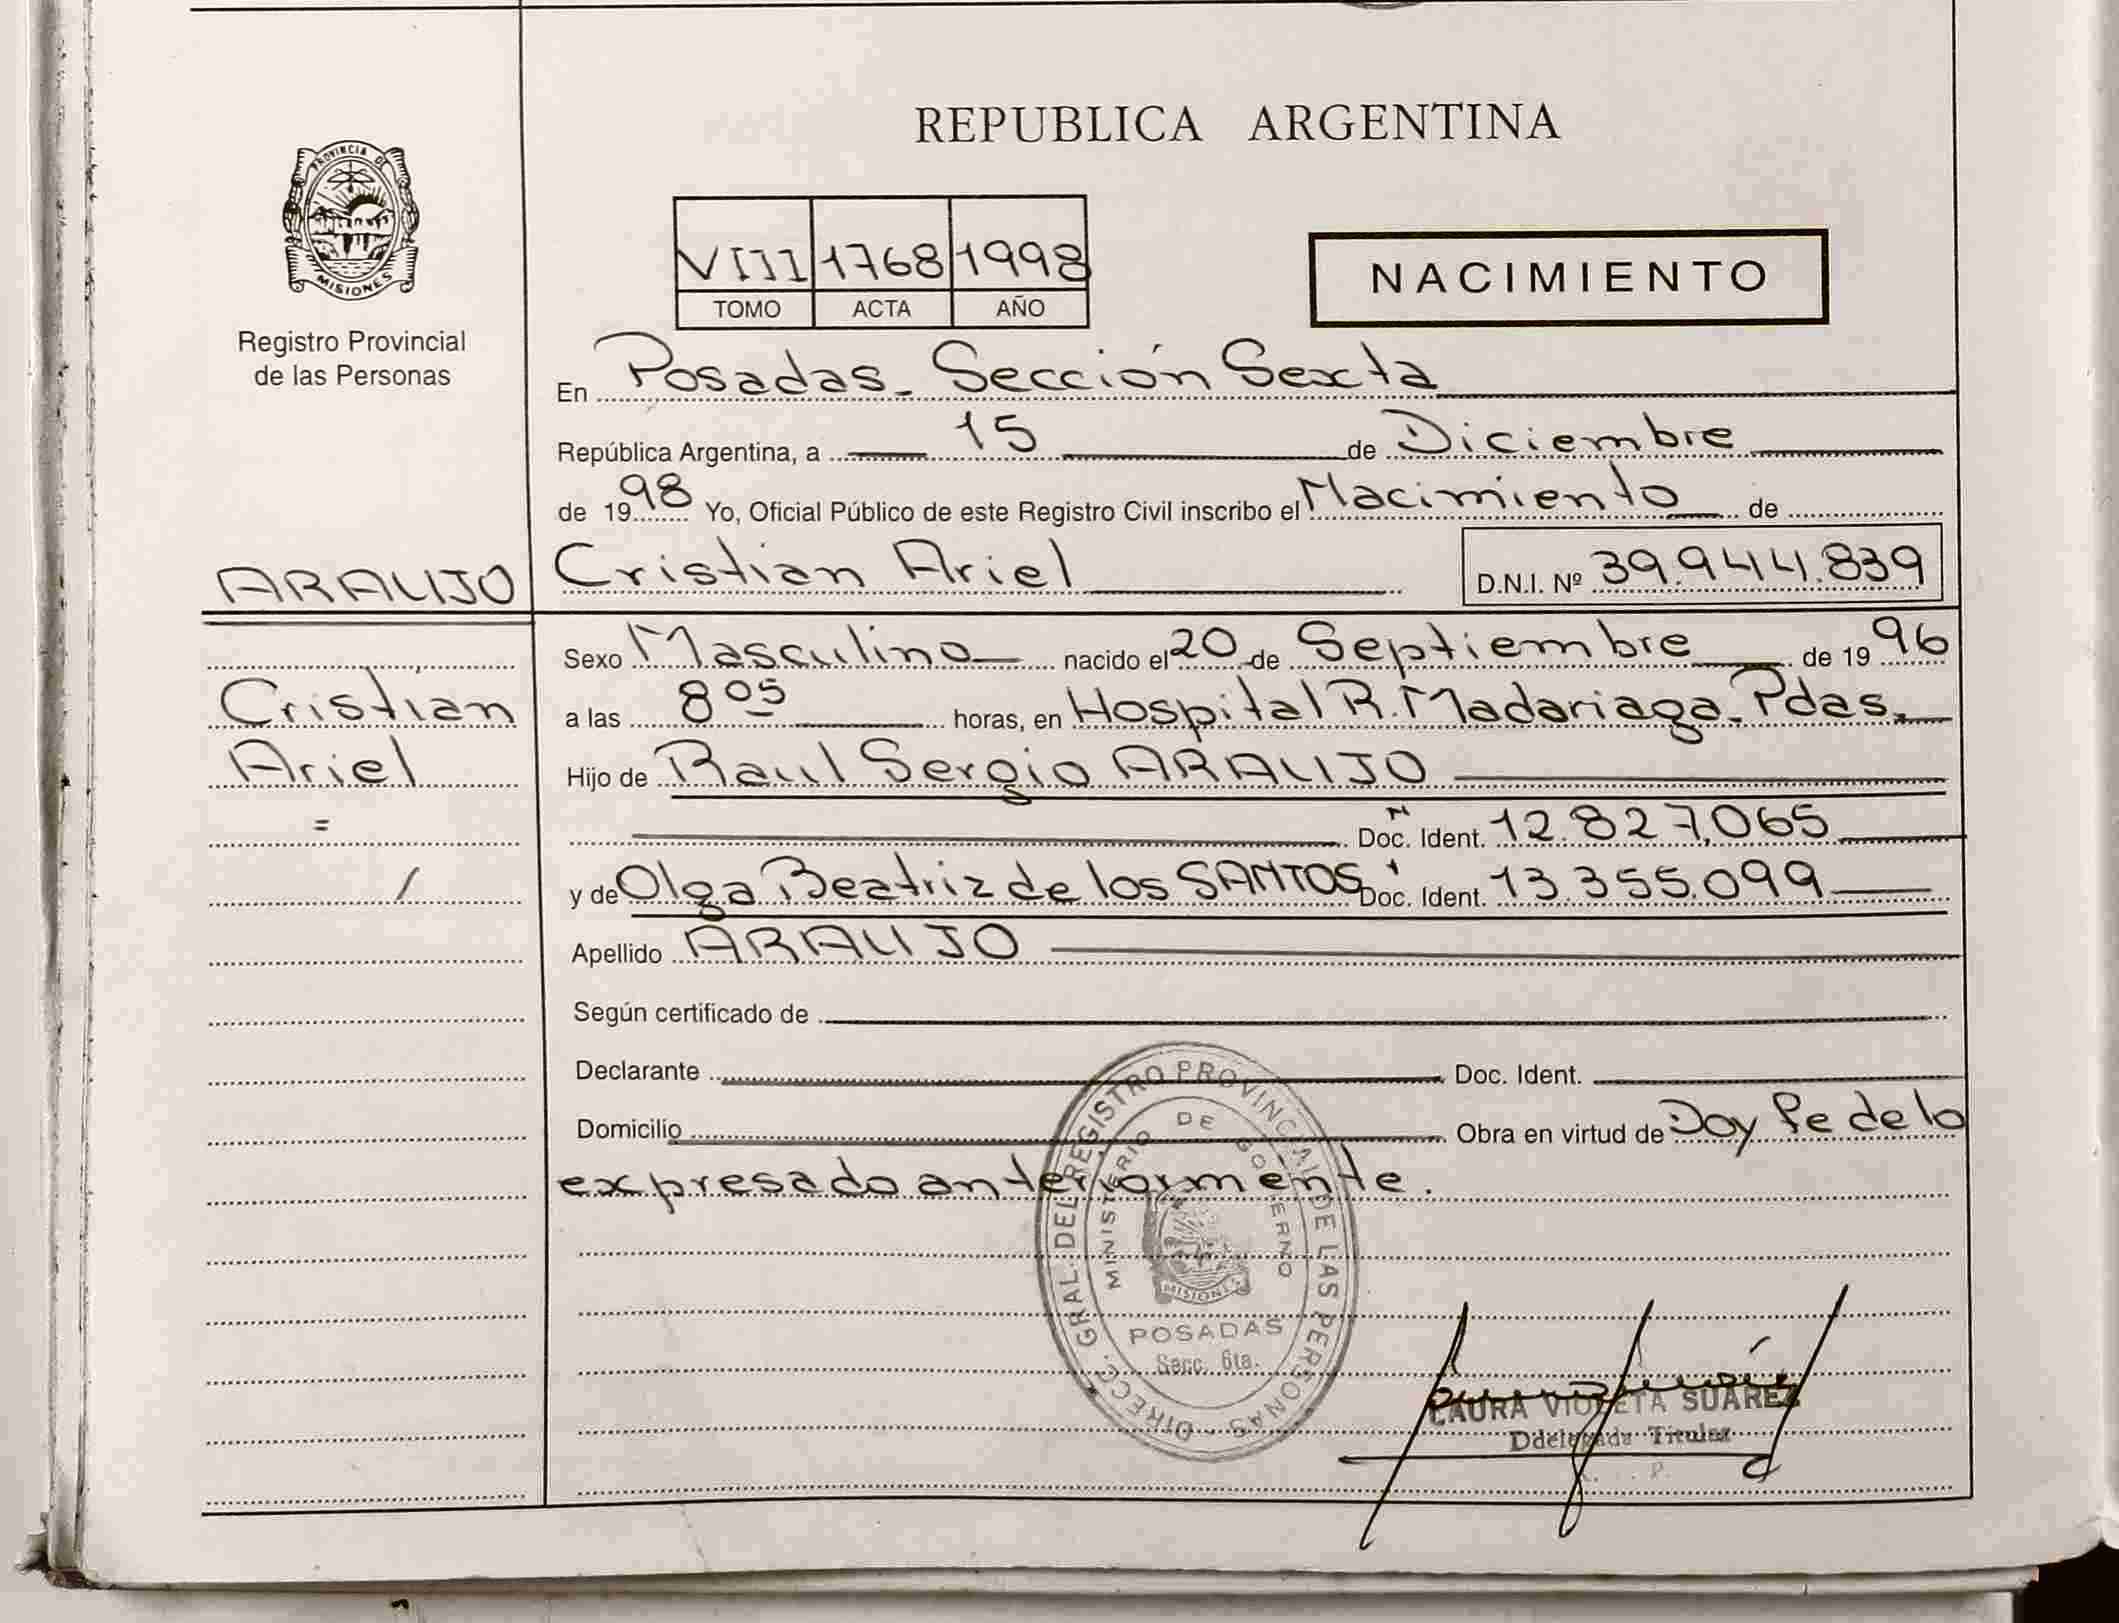 REPUBLICA ARGENTINA
PROVINCIA DE
MISIONES
Registro Provincial
de las Personas
VIII 1768 1998
TOMO ACTA AÑO
NACIMIENTO
En Posadas - Sección Sexta
República Argentina, a 15 de Diciembre
de 1998 Yo, Oficial Público de este Registro Civil inscribo el Nacimiento de
ARAUJO
Cristian Ariel D.N.I. Nº 39.944.839
Sexo Masculino nacido el 20 de Septiembre de 1996
Cristian
Ariel
a las 8 05 horas, en Hospital R. Madariaga - Pdas.
Hijo de Raul Sergio ARAUJO
Doc. Ident. 12.827.065
y de Olga Beatriz de los SANTOS Doc. Ident. 13.355.099
Apellido ARAUJO
Según certificado de
Declarante Doc. Ident.
Domicilio Obra en virtud de Doy fe de lo
expresado anteriormente.
DIRECC. GRAL. DEL REGISTRO PROVINCIAL DE LAS PERSONAS
MINISTERIO DE GOBIERNO
MISIONES
POSADAS
Secc. 6ta.
LAURA VIOLETA SUAREZ
Ddelegada Titular